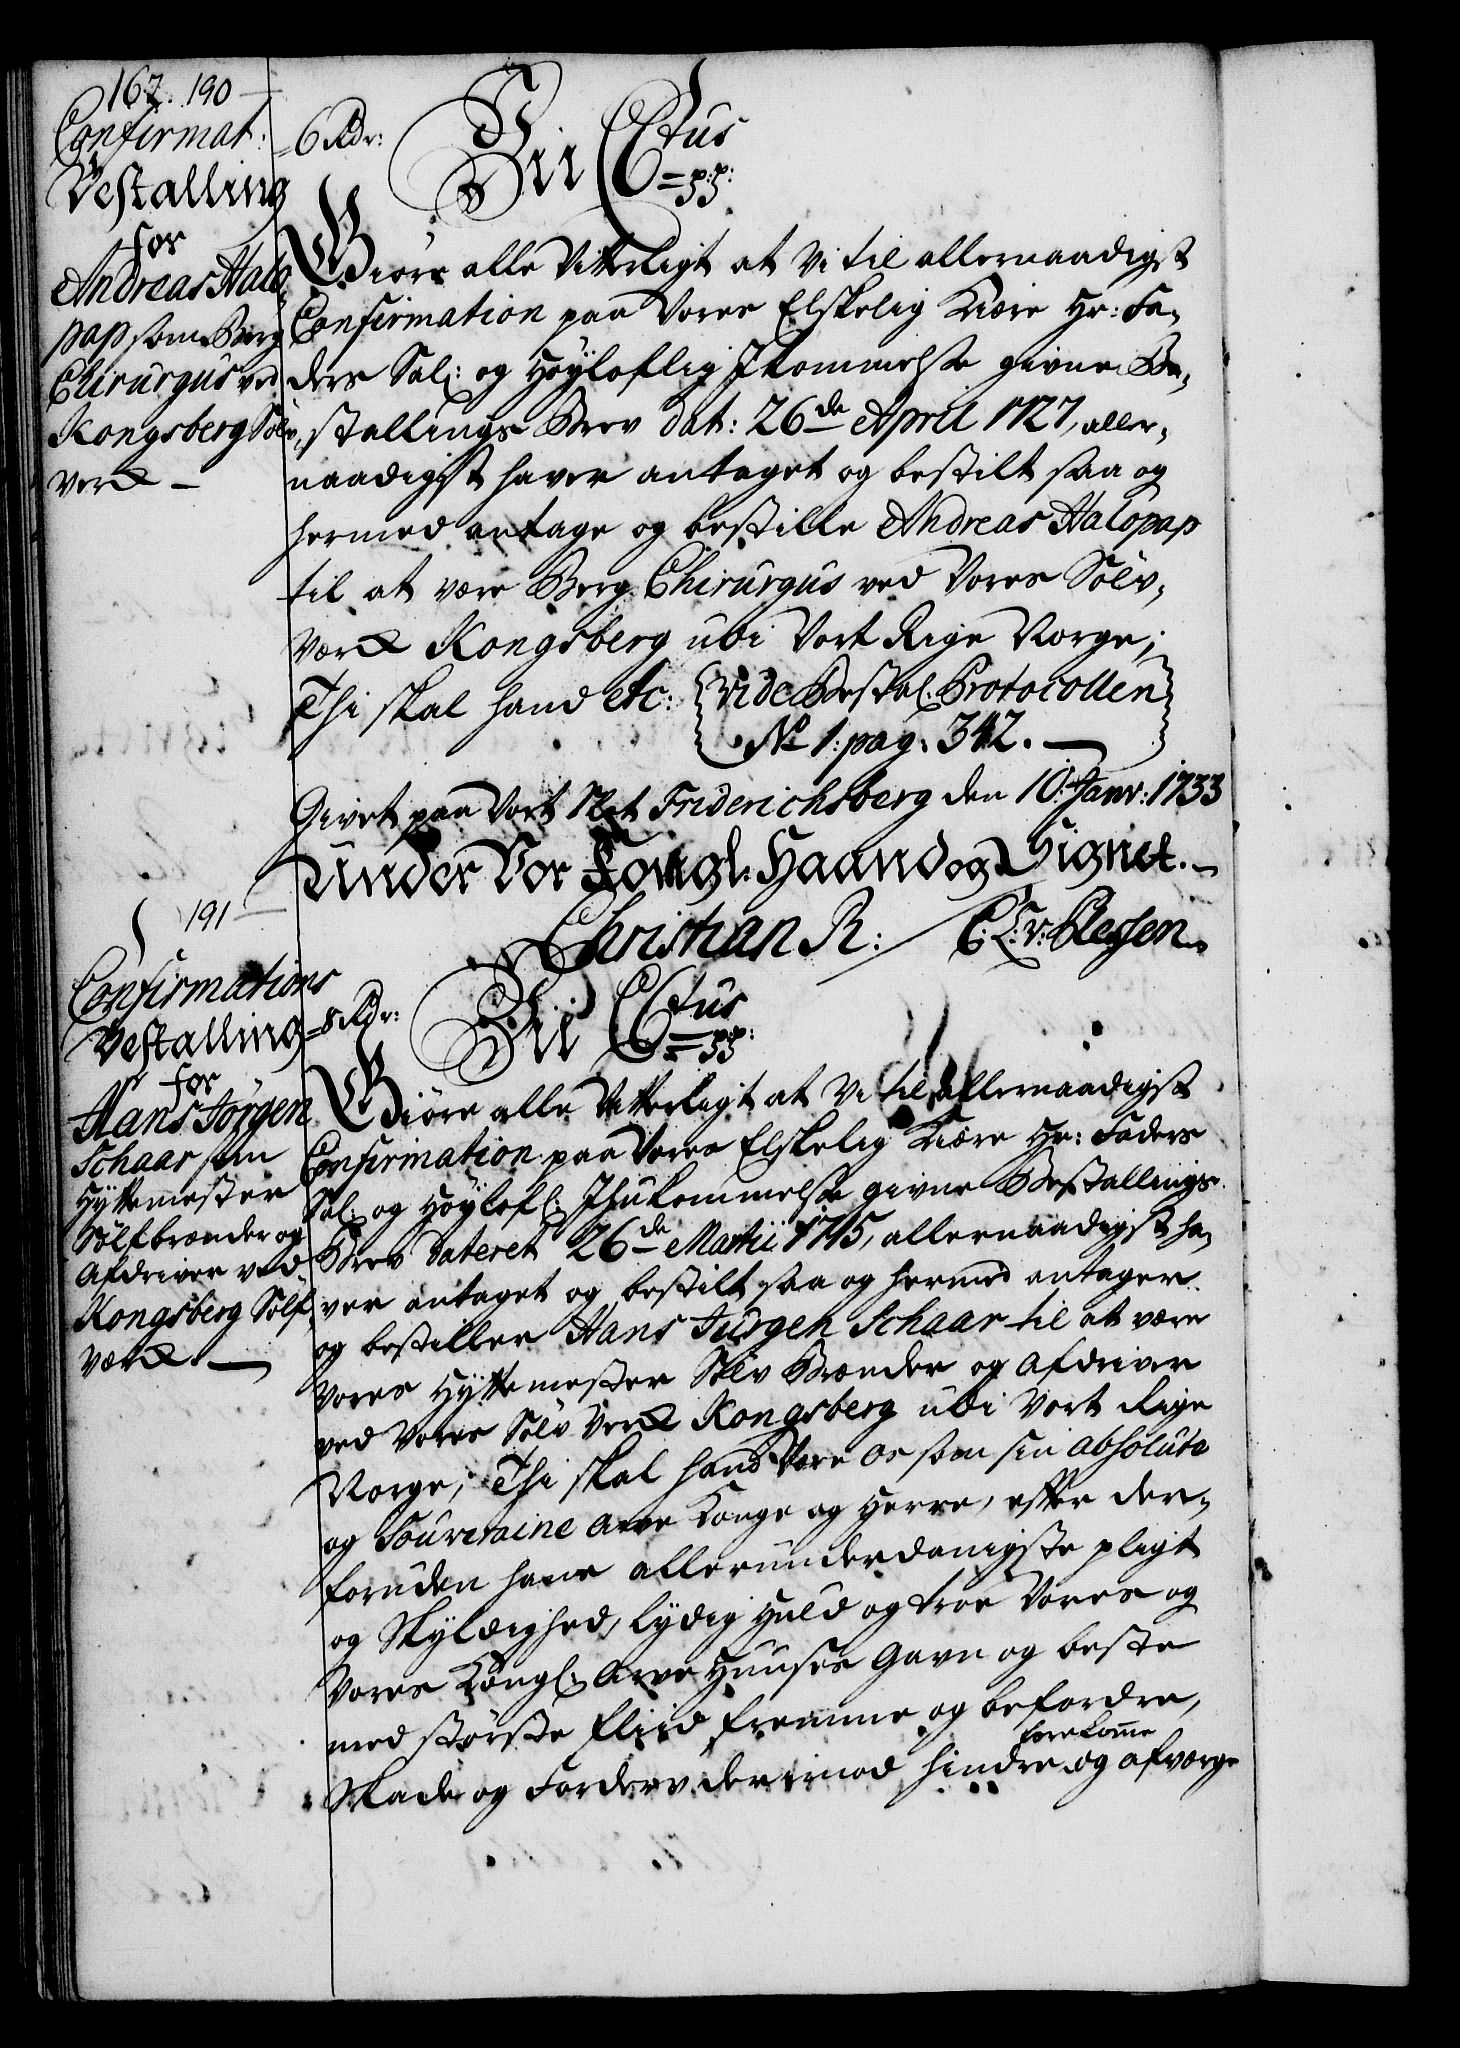 167. 190
Confirmat:
Bestalling
for
Andreas Halo
pap som Berg
Chirurgus ved
Kongsberg Sølv
Verck —
6 Rdr:
Vii C6tus
= p: p:
Giøre alle Vitterligt at Vi til allernaadigst
Confirmation paa Vores Elskelig Kiære Hr: Fa-
ders Sal: og Høyloflig Ihkommelse givne Be-
stallings Brev dat: 26de April 1727, aller-
naadigst haver antaget og bestilt saa og
hermed antage og bestille Andreas Halopap
til at være Berg Chirurgus ved Vores Sølv-
Værck Kongsberg udi Vort Rige Norge;
Thi skal hand etc: (vide Bestal. Protocollen
No 1: pag: 342. —
Givet paa Vort Slot Friderichsberg den 10. Janv: 1733
Under Vor Kongl. Haand og Signet. —
Christian R: / C: A: v: Plessen
191
Confirmations
Bestalling
for
Hans Jörgen
Schaar som
Hyttemester
Sølfbrænder og
Afdriver ved
Kongsberg Sølf
Værck. —
8 Rdr:
Vii C6tus
= p: p:
Giöre alle Vitterligt at Vi til allernaadigst
Confirmation paa Vores Elskelig Kiære Hr: Faders
Sal: og Höylofl: Ihukommelse givne Bestallings
Brev dateret 26de Martii 1715, allernaadigst ha-
ver antaget og bestilt saa og hermed antager
og bestiller Hans Jürgen Schaar til at være
Vores Hyttemester Sølv Brænder og Afdriver
ved Vores Sølv Verck Kongsberg udi Vort Rige
Norge; Thi skal hand Være os som sin absolute
og Souveraine Arve Konge og Herre, efter der-
foruden hans allerunderdanigste pligt
og Skyldighed, lydig huld og troe Vores og
Vores Kongl: Arve Huuses Gavn og beste
med største Fliid fremme og befordre,
forekomme
Skade og Forderv derimod hindre og afværge